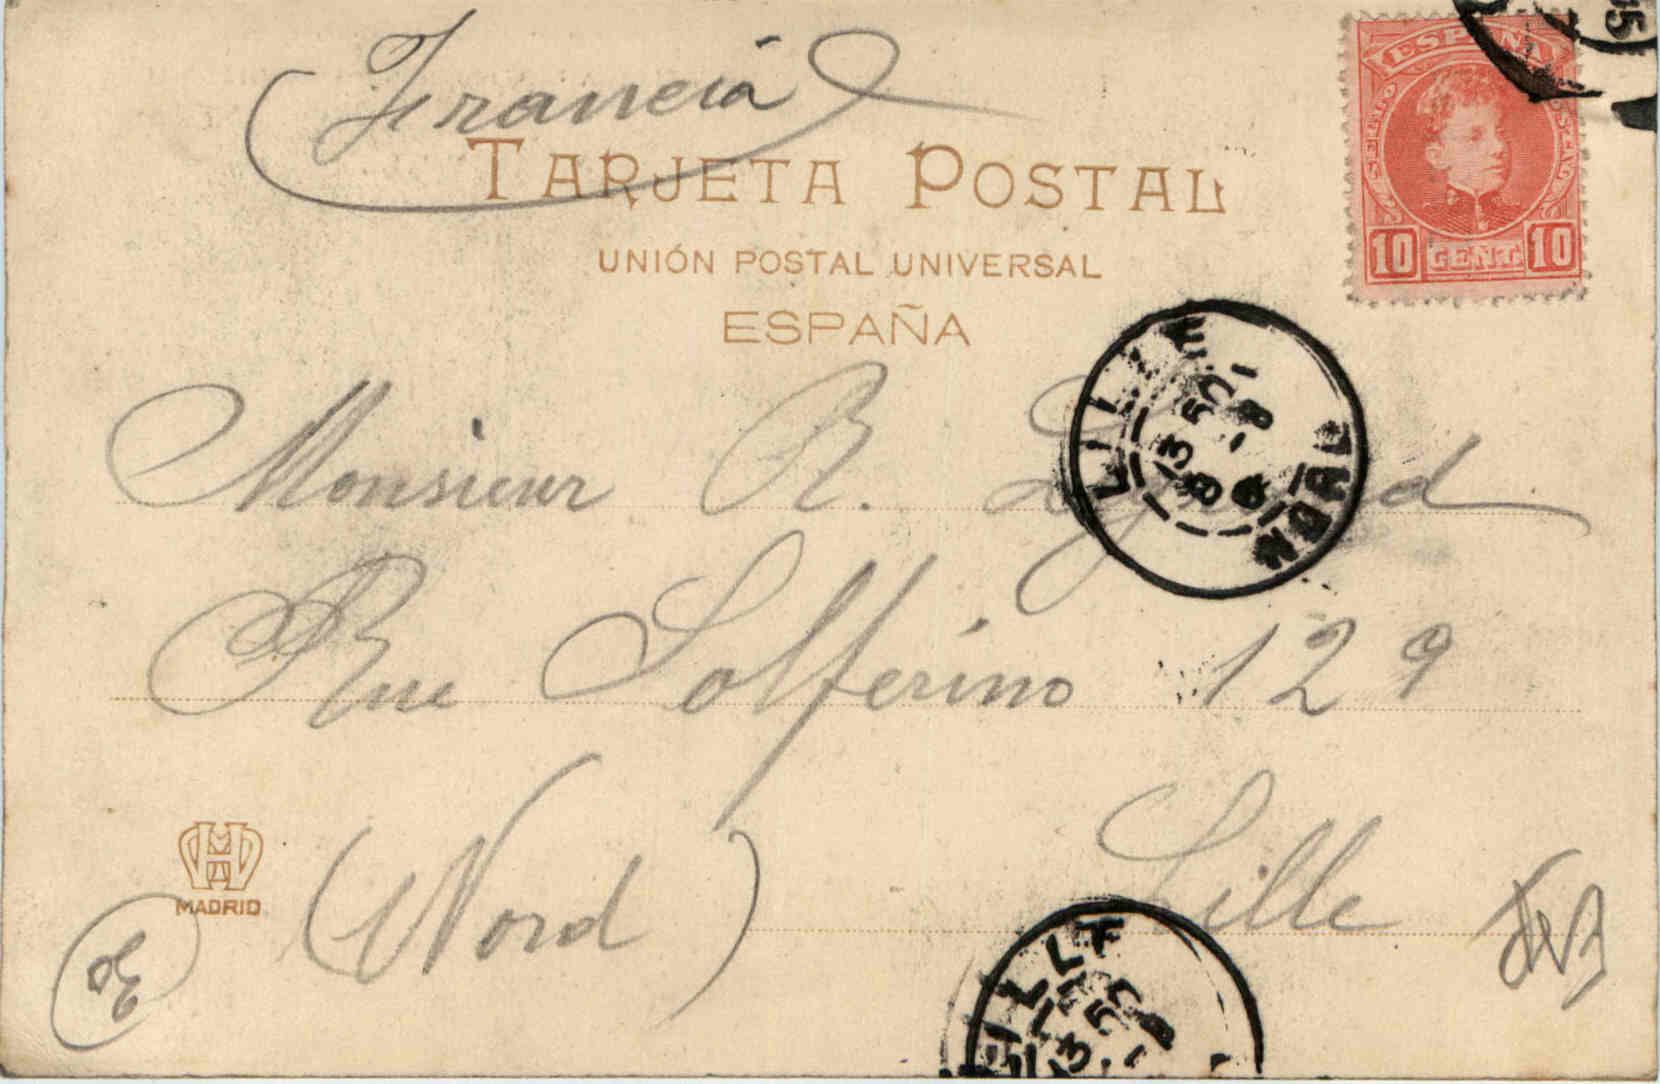 Francia
TARJETA POSTAL
UNIÓN POSTAL UNIVERSAL
ESPAÑA
ESPAÑA
10 CENT. 10
LILLE
NORD
13 50
Monsieur R.
Rue Solferino 129
(Nord) Lille
MADRID
LILLE